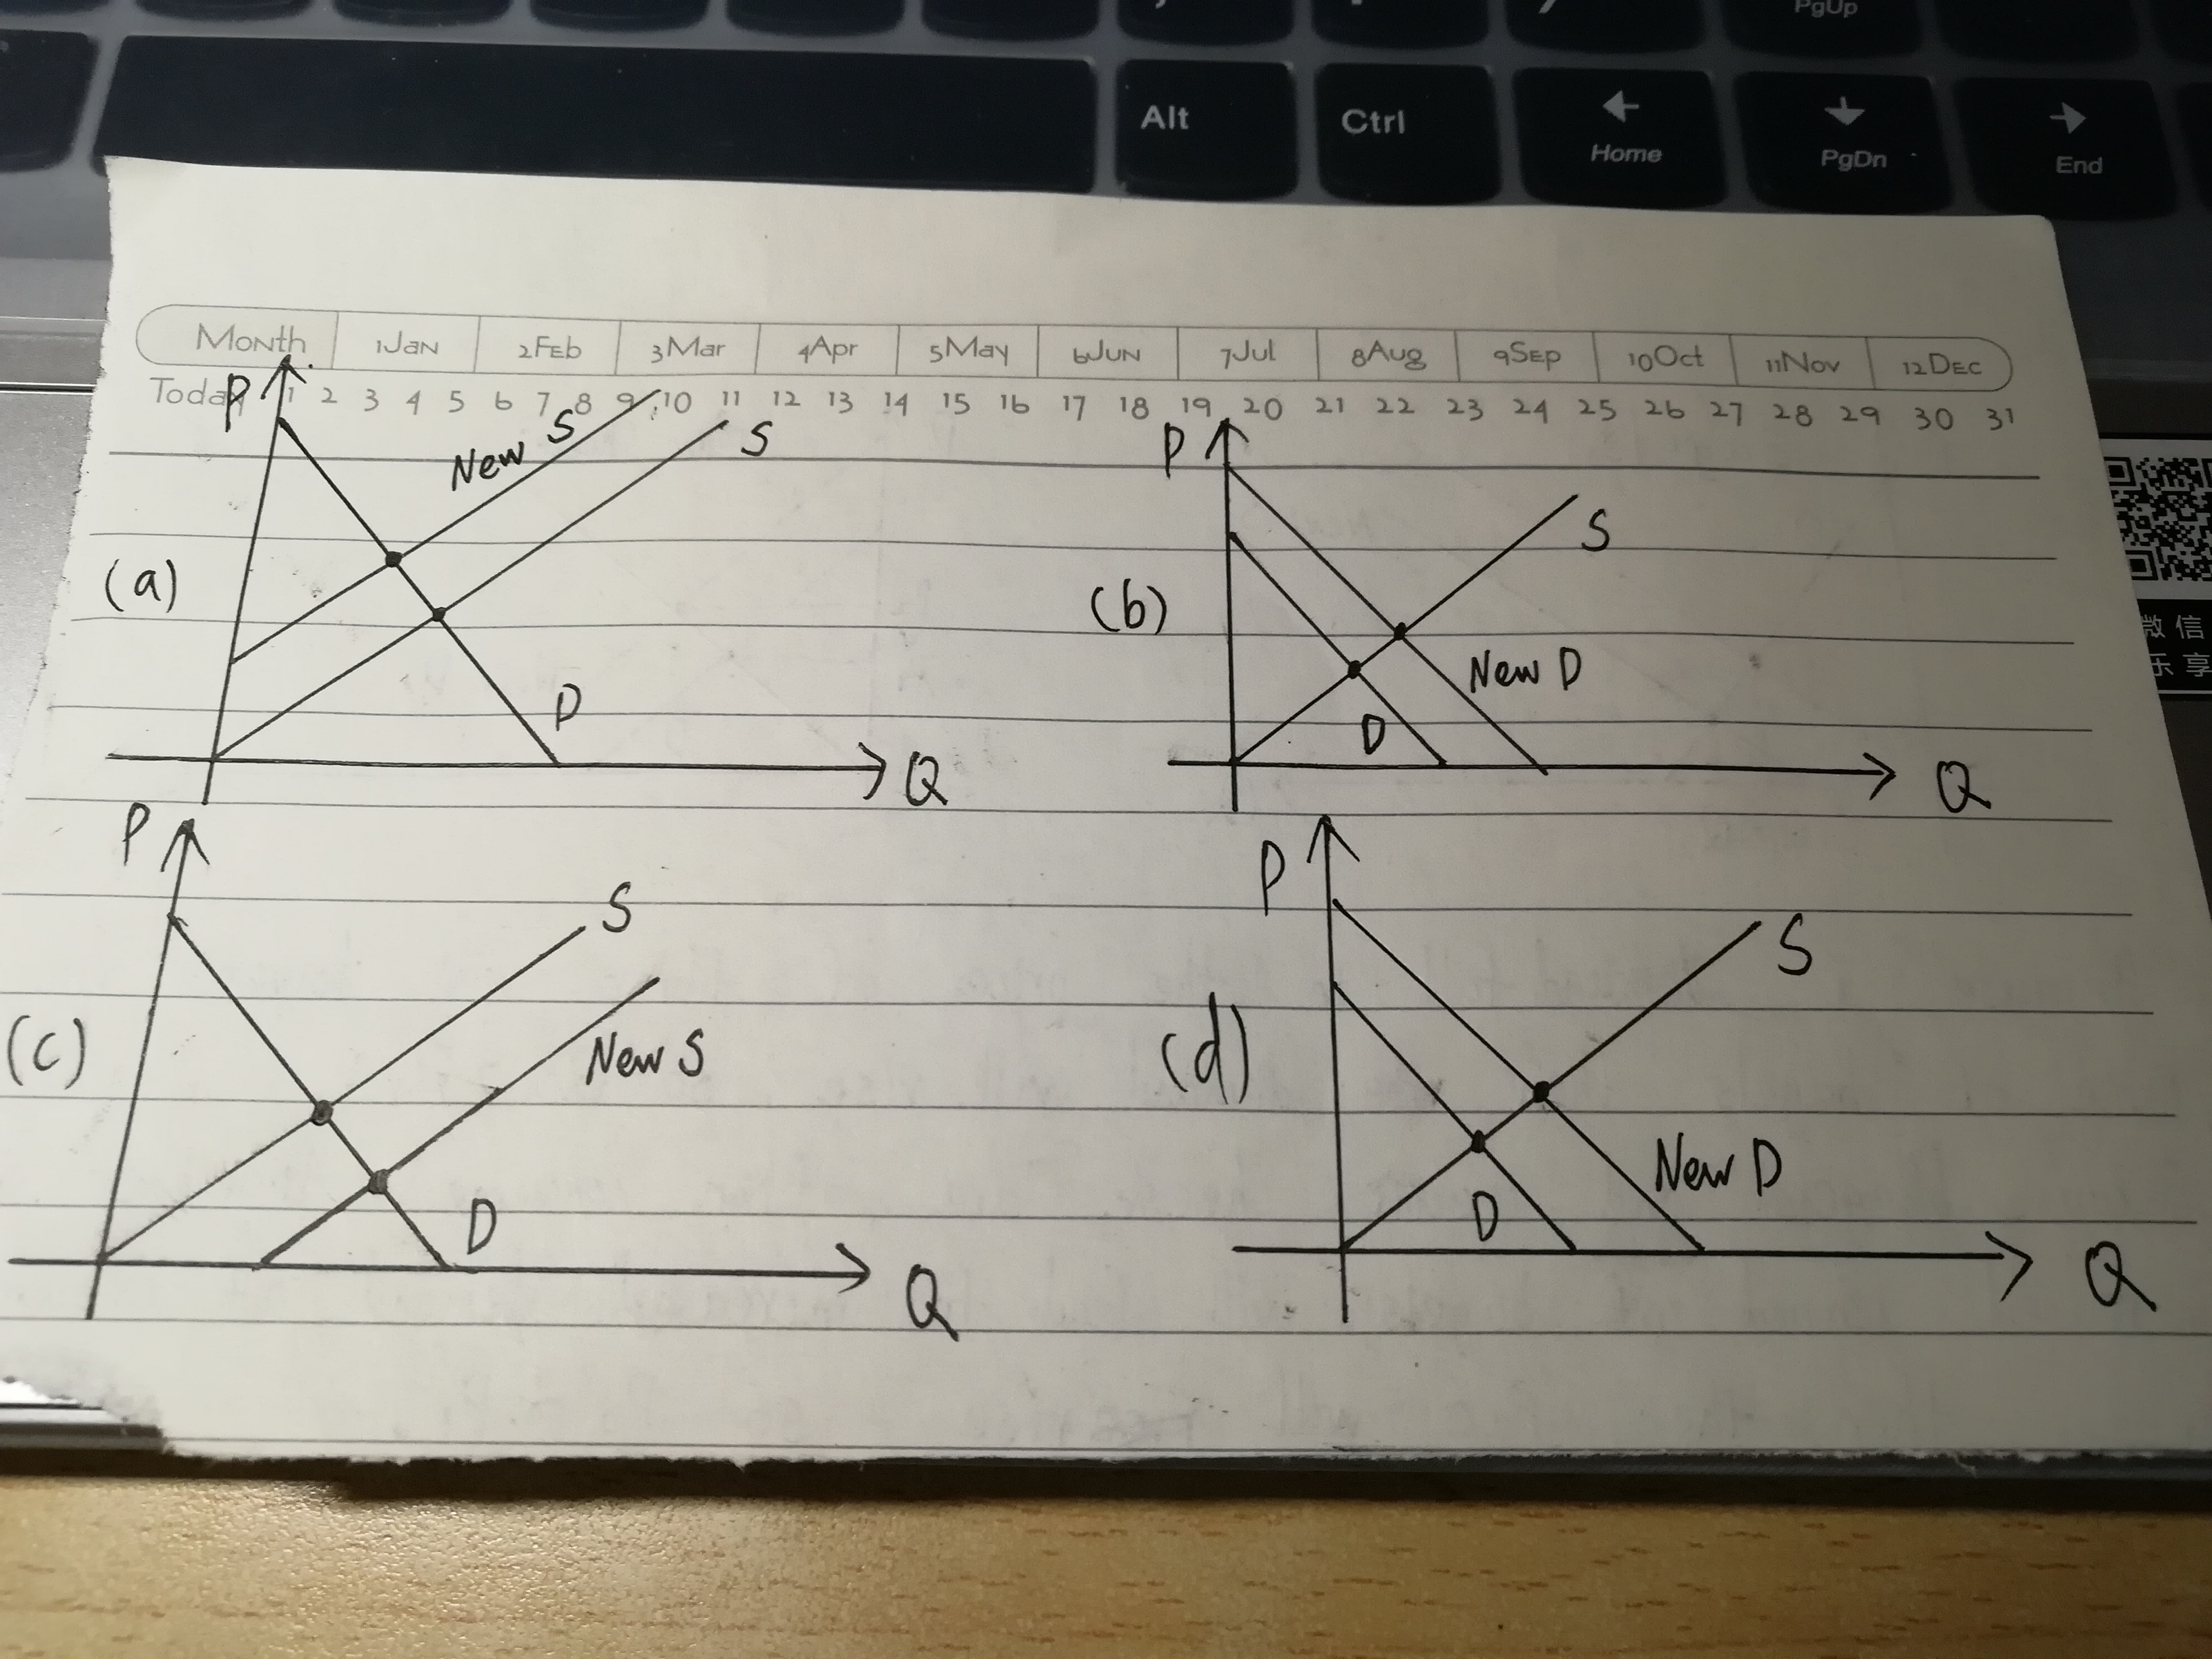 PgUp
Alt Ctrl Home PgDn End
Month 1Jan 2Feb 3Mar 4Apr 5May 6Jun 7Jul 8Aug 9Sep 10Oct 11Nov 12Dec
Today 1 2 3 4 5 6 7 8 9 10 11 12 13 14 15 16 17 18 19 20 21 22 23 24 25 26 27 28 29 30 31
P
New S
S
(a)
D
Q
P
S
(b)
New D
D
Q
微信
乐享
P
S
(c)
New S
D
Q
P
S
(d)
New D
D
Q